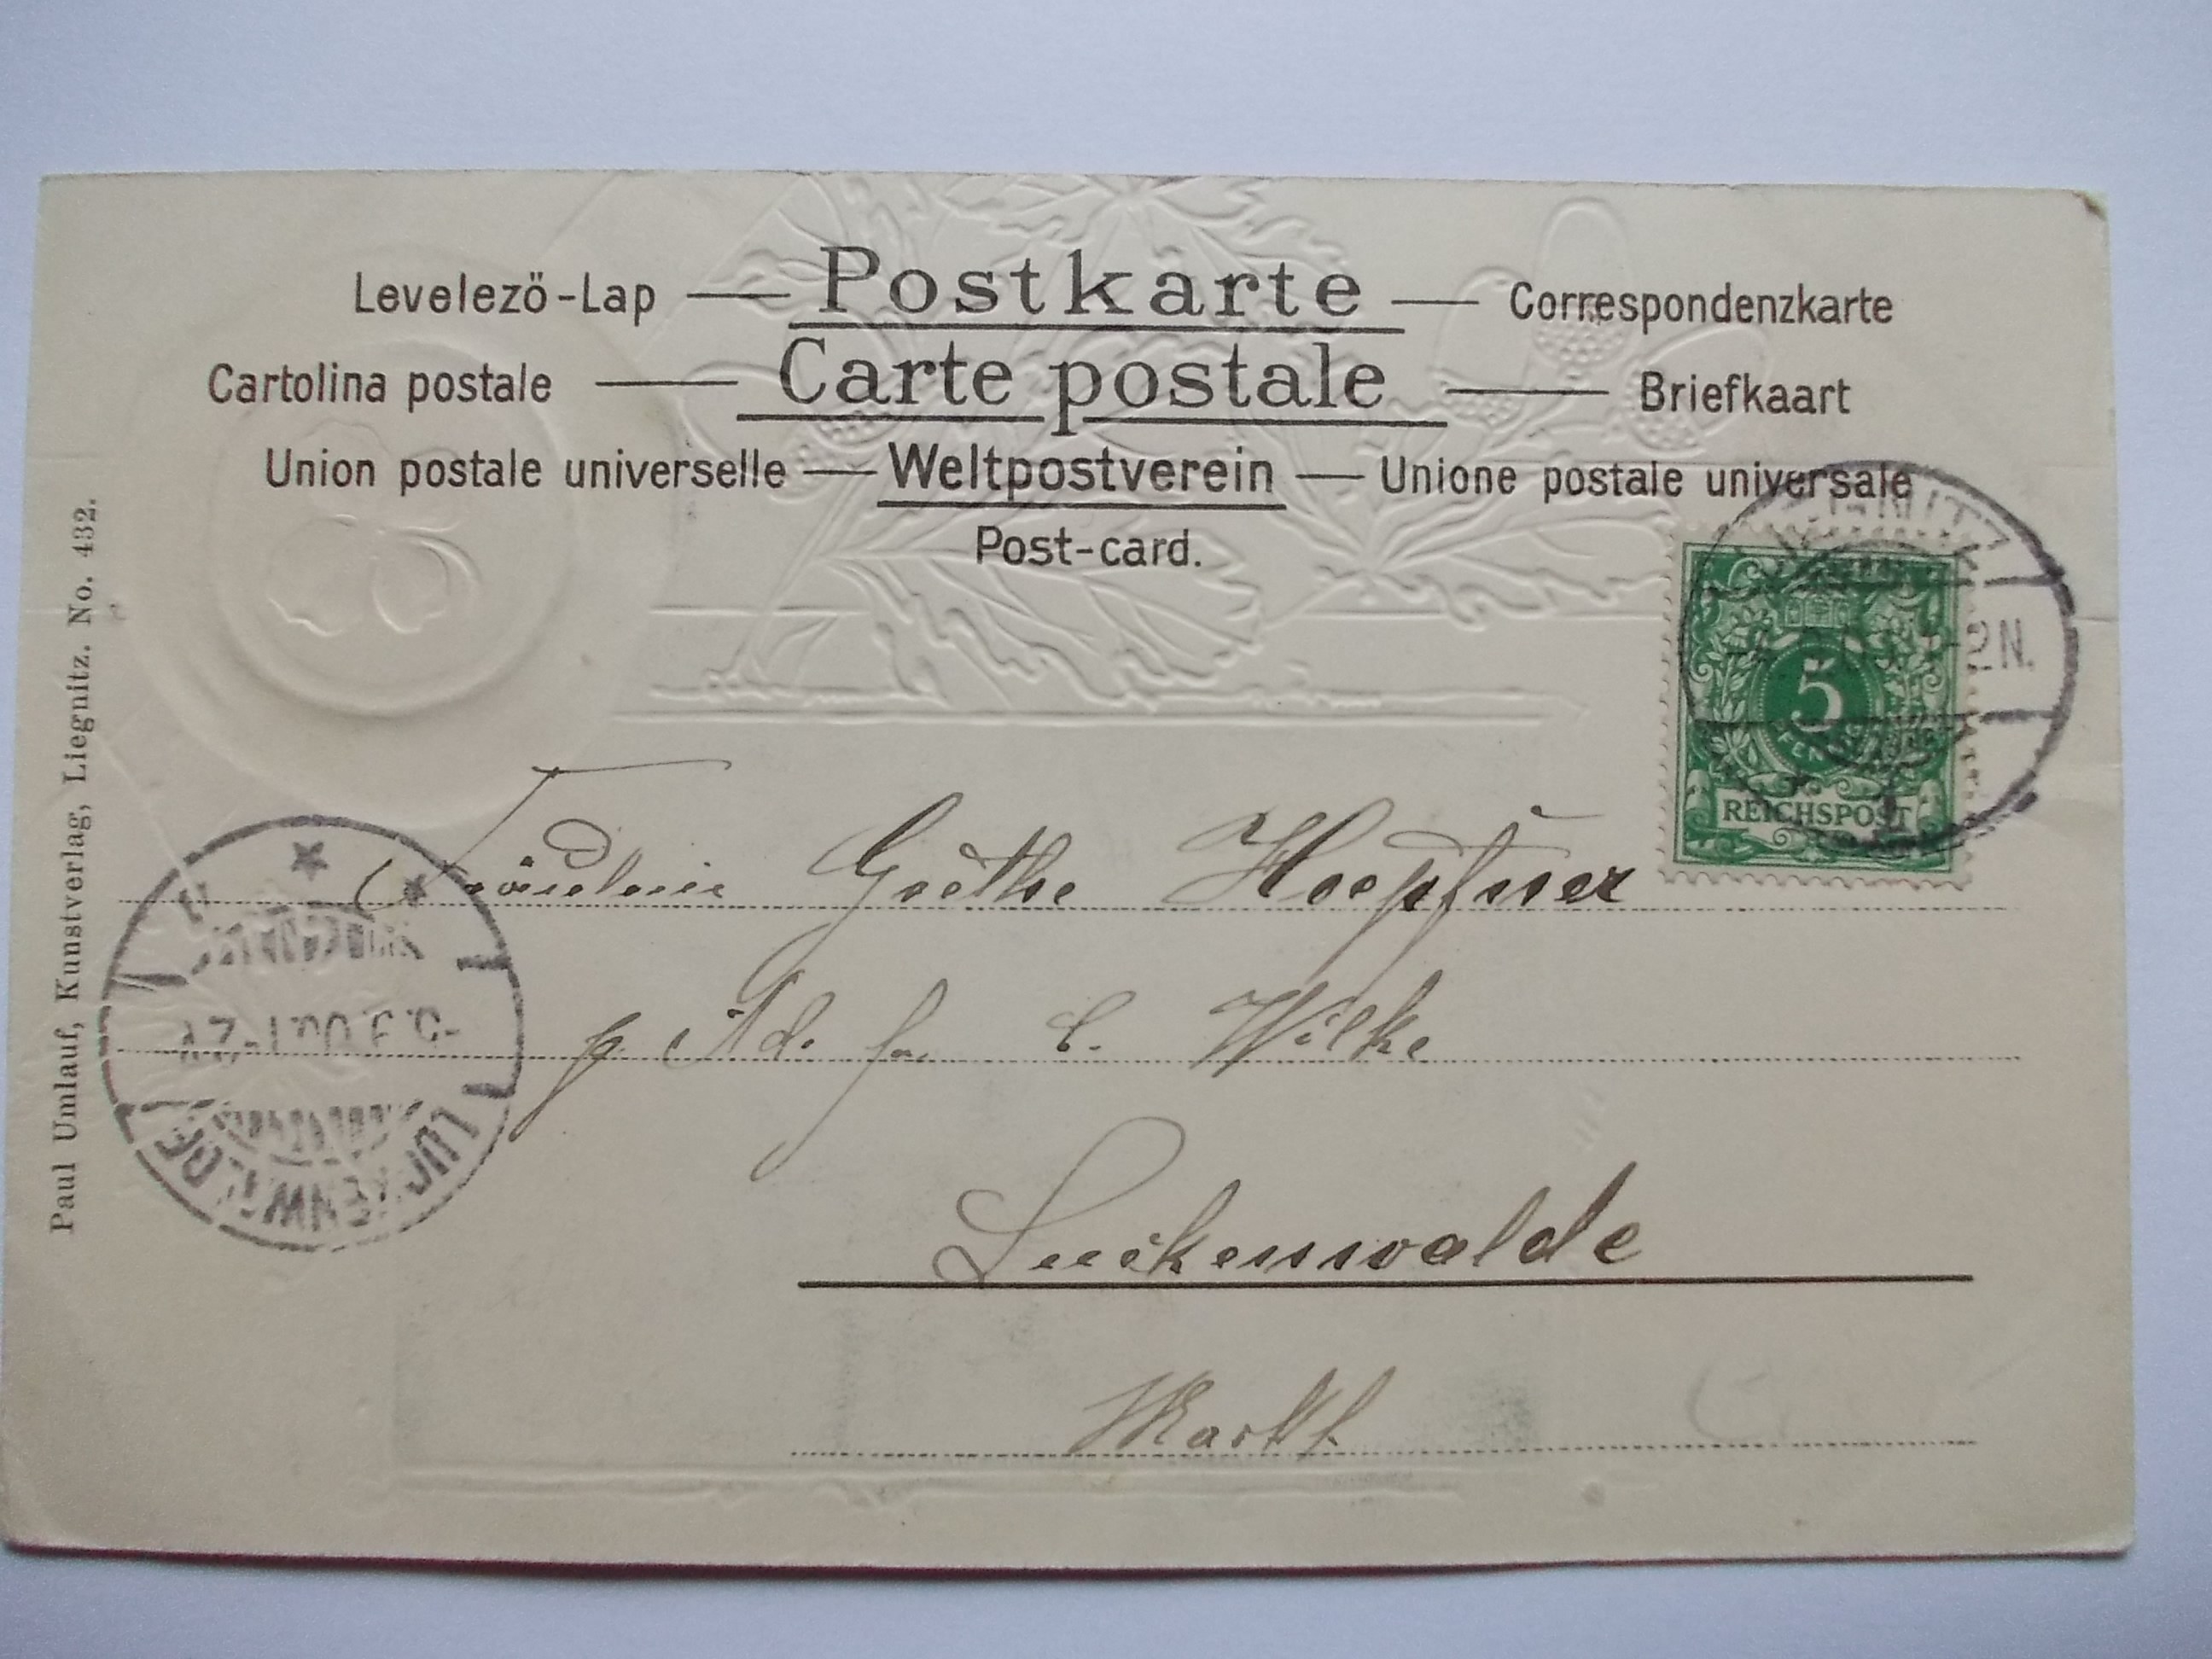 Levelezö-Lap — Postkarte — Correspondenzkarte
Cartolina postale — Carte postale — Briefkaart
Union postale universelle — Weltpostverein — Unione postale universale
Post-card.
Paul Umlauf, Kunstverlag, Liegnitz. No. 432.
5
REICHSPOST
2N.
Fräulein Grethe Hoepfner
p Ad. fa. C. Wilke
Luckenwalde
Markt.
LUCKENWALDE